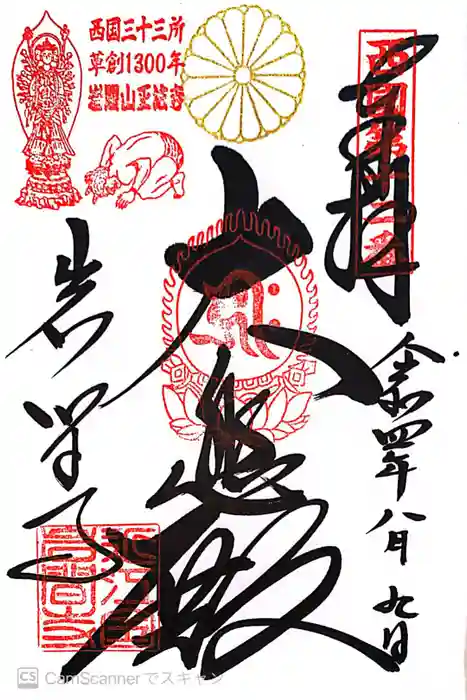 西国三十三所
草創1300年
岩間山正法寺
西国第十二番
奉拝
令和四年八月九日
大悲殿
岩間寺
CS CamScannerでスキャン